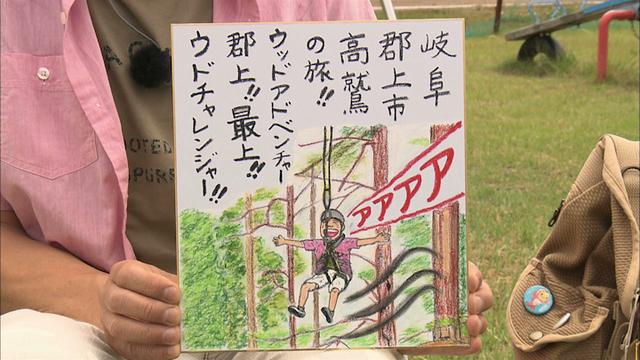 岐阜
郡上市
高鷲
の旅!!
ウッドアドベンチャー
郡上!!最上!!
ウドチャレンジャー!!
アアアア